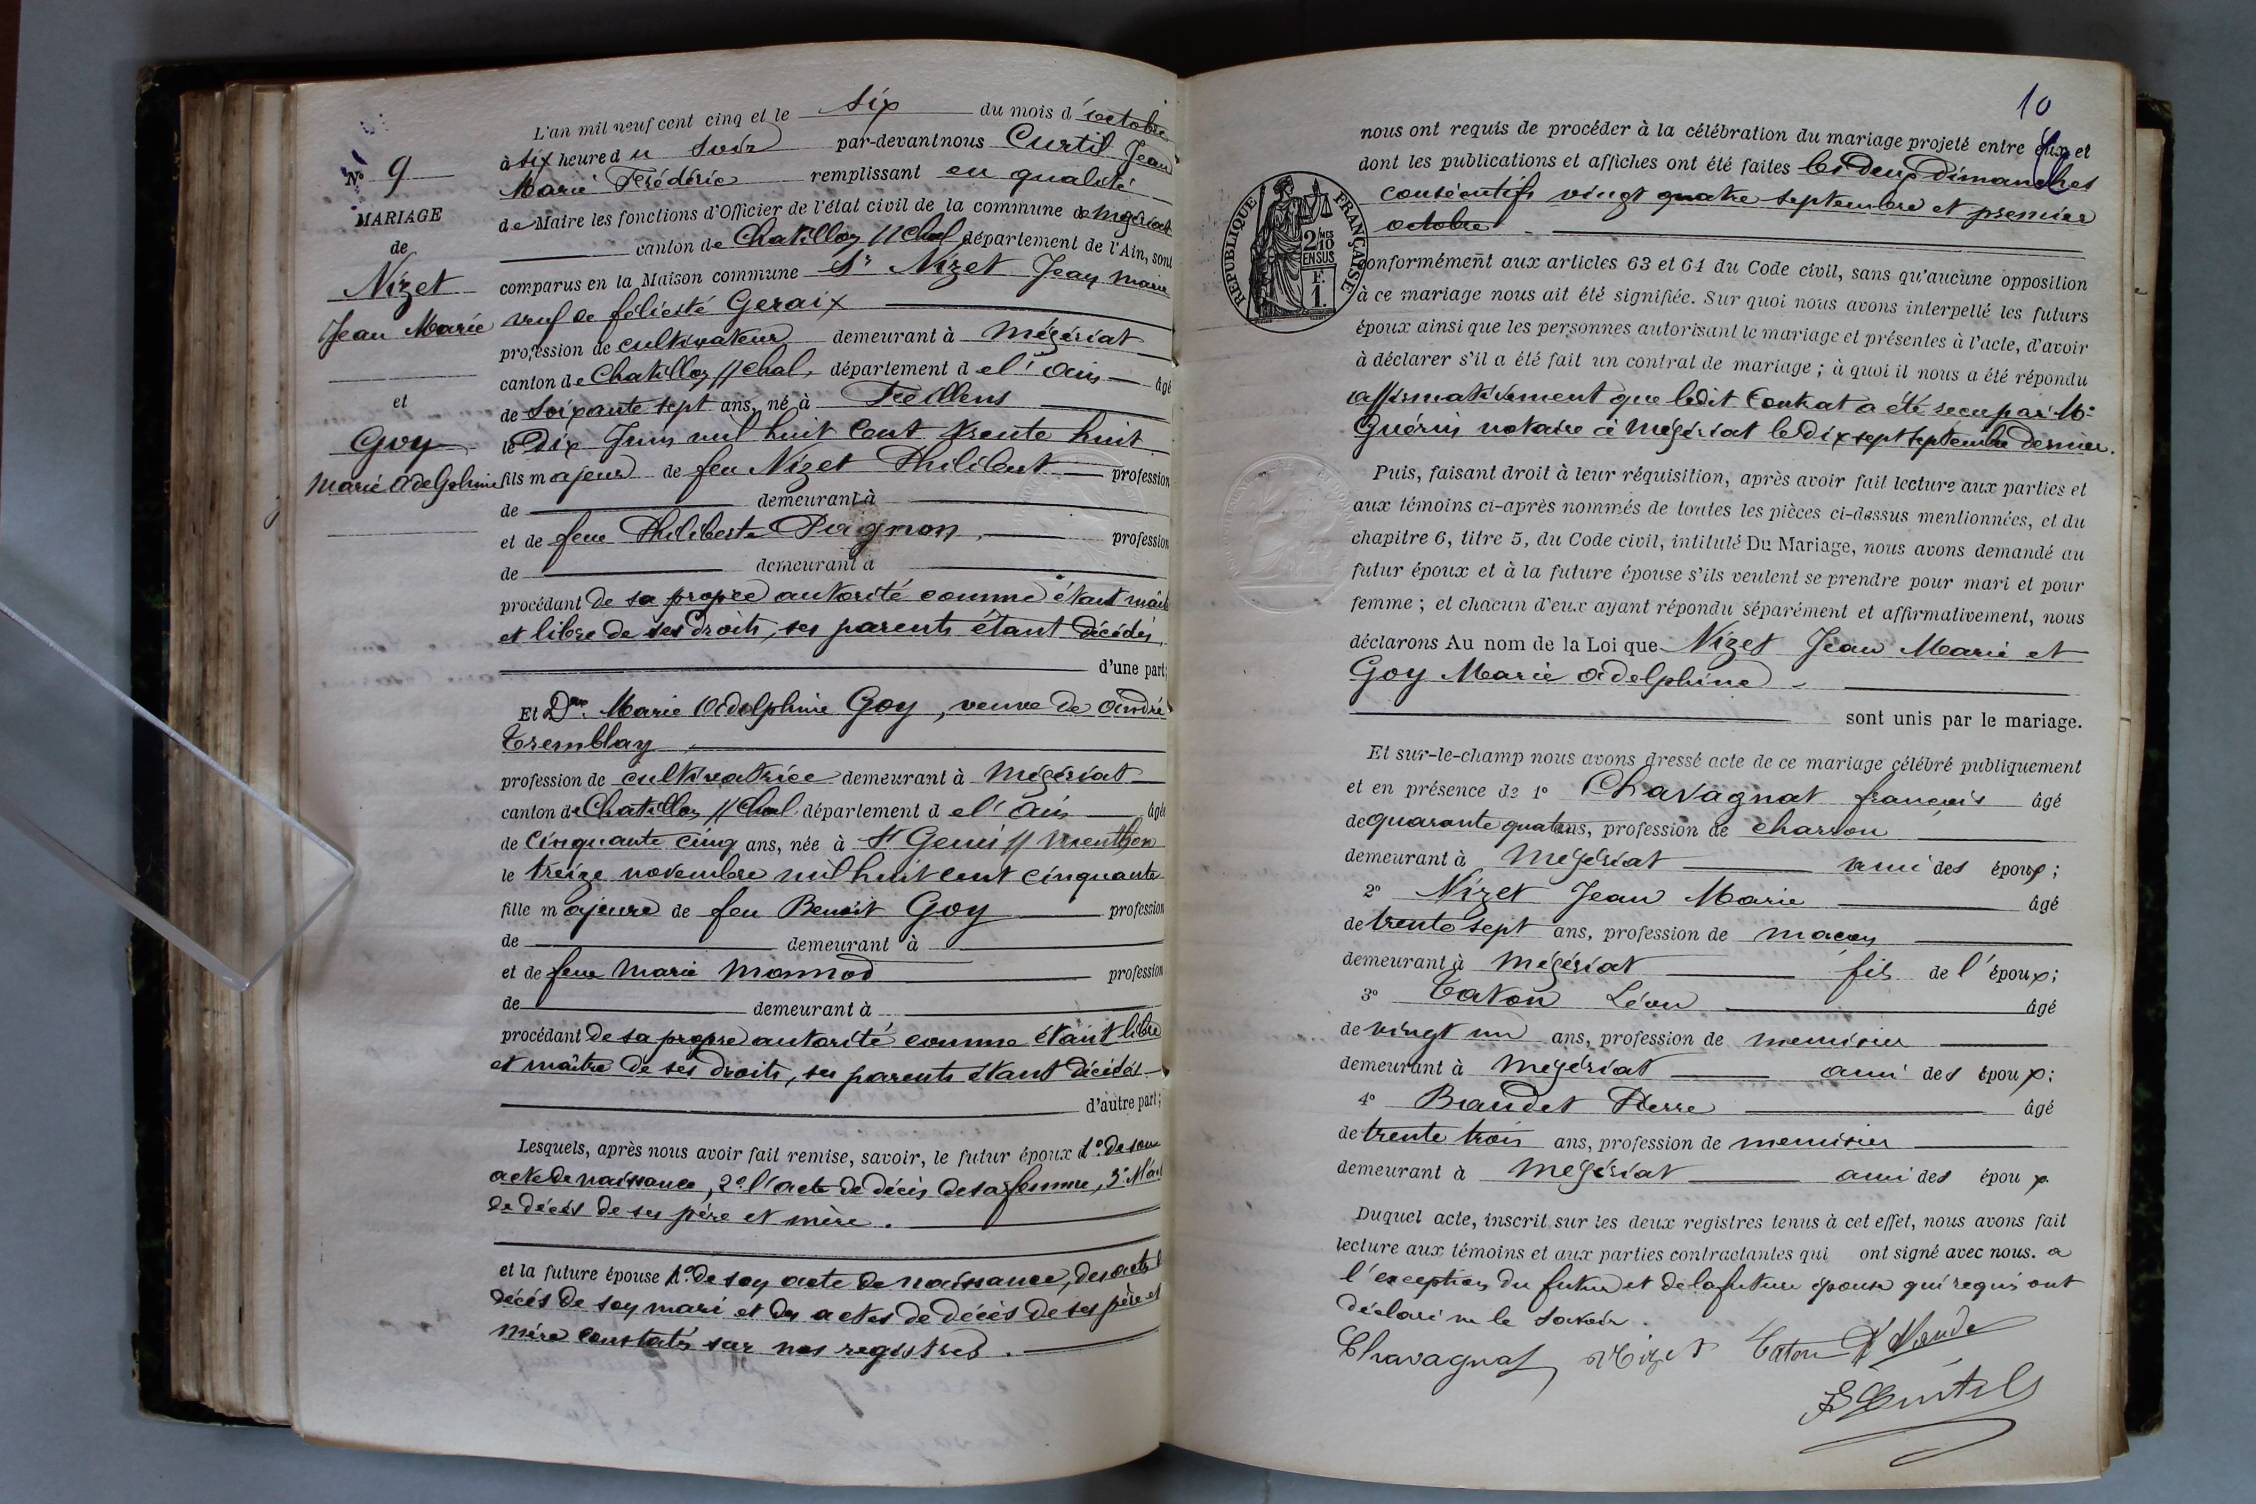 N° 9
MARIAGE
de
Nizet
Jean Marie
et
Goy
Marie Adelphine
L'an mil neuf cent cinq et le six du mois d'octobre
à six heure du soir par-devant nous Curtil Jean
Marie Frédéric remplissant en qualité
de Maire les fonctions d'Officier de l'état civil de la commune de Mézériat
canton de Chatillon s/ Chal. département de l'Ain, sont
comparus en la Maison commune Sr Nizet Jean Marie
veuf de félicité Geraix
profession de cultivateur demeurant à Mézériat
canton de Chatillon s/ Chal. département de l'Ain âgé
de soixante sept ans, né à Feillens
le Dix Juin mil huit cent trente huit
fils majeur de feu Nizet Philibert profession
de demeurant à
et de feue Philiberte Pagnon, profession
de demeurant à
procédant de sa propre autorité comme étant maître
et libre de ses droits, ses parents étant décédés,
d'une part;
Et Dme Marie Adelphine Goy, veuve de André
Tremblay,
profession de cultivatrice demeurant à Mézériat
canton de Chatillon s/ Chal. département de l'Ain âgée
de cinquante cinq ans, née à St Genis s/ Menthon
le treize novembre mil huit cent cinquante
fille majeure de feu Benoit Goy profession
de demeurant à
et de feue Marie Monnod profession
de demeurant à
procédant de sa propre autorité comme étant libre
et maître de ses droits, ses parents étant décédés
d'autre part;
Lesquels, après nous avoir fait remise, savoir, le futur époux 1° de son
acte de naissance, 2° l'acte de décès de sa femme, 3°
de décès de ses père et mère.
et la future épouse 1° de son acte de naissance, des acte de
décès de son mari et des actes de décès de ses père et
mère constatés sur nos registres.
10
nous ont requis de procéder à la célébration du mariage projeté entre eux et
dont les publications et affiches ont été faites les deux Dimanches
consécutifs vingt quatre septembre et premier
octobre
RÉPUBLIQUE FRANÇAISE
2/10MES
EN SUS
F.
1.
conformément aux articles 63 et 64 du Code civil, sans qu'aucune opposition
à ce mariage nous ait été signifiée. Sur quoi nous avons interpellé les futurs
époux ainsi que les personnes autorisant le mariage et présentes à l'acte, d'avoir
à déclarer s'il a été fait un contrat de mariage; à quoi il nous a été répondu
affirmativement que ledit contrat a été recu par Me
Guérin notaire à Mézériat le dix sept septembre dernier.
Puis, faisant droit à leur réquisition, après avoir fait lecture aux parties et
aux témoins ci-après nommés de toutes les pièces ci-dessus mentionnées, et du
chapitre 6, titre 5, du Code civil, intitulé Du Mariage, nous avons demandé au
futur époux et à la future épouse s'ils veulent se prendre pour mari et pour
femme; et chacun d'eux ayant répondu séparément et affirmativement, nous
déclarons Au nom de la Loi que Nizet Jean Marie et
Goy Marie Adelphine
sont unis par le mariage.
Et sur-le-champ nous avons dressé acte de ce mariage célébré publiquement
et en présence de 1° Chavagnat françois âgé
de quarante quatre ans, profession de charron
demeurant à Mézériat ami des époux;
2° Nizet Jean Marie âgé
de trente sept ans, profession de maçon
demeurant à Mézériat fils de l'époux;
3° Caton Léon âgé
de vingt un ans, profession de menuisier
demeurant à Mézériat ami des époux;
4° Baudet Pierre âgé
de trente trois ans, profession de menuisier
demeurant à Mézériat ami des époux
Duquel acte, inscrit sur les deux registres tenus à cet effet, nous avons fait
lecture aux témoins et aux parties contractantes qui ont signé avec nous. a
l'exception du futur et de la future épouse qui requis ont
déclaré ne le savoir.
Chavagnat Nizet Caton
Curtil